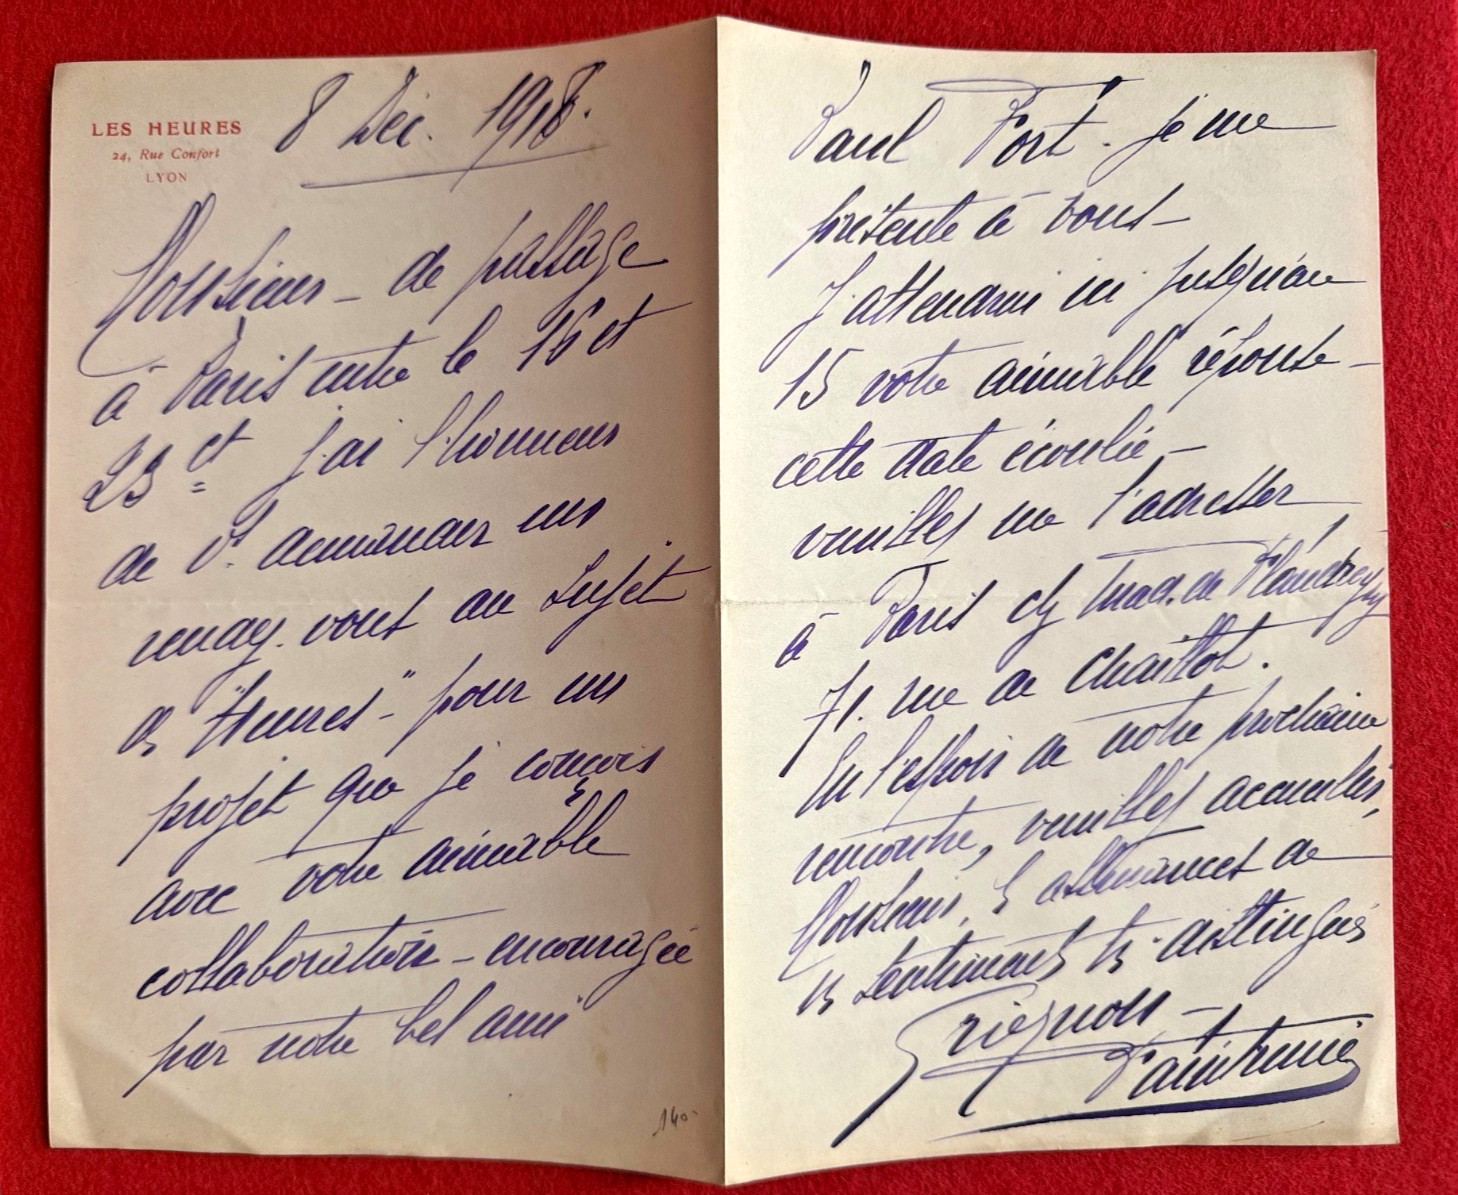 LES HEURES
24, Rue Confort
LYON
8 Déc. 1918.
Monsieur – de passage
à Paris entre le 16 et
23 ct j'ai l'honneur
de V. demander un
rendez-vous au sujet
des "Heures" – pour un
projet que je conçois
avec votre aimable
collaboration – encouragée
par notre bel ami
140
Paul Fort. Je me
présente à vous –
J'attendrai ici jusqu'au
15 votre aimable réponse –
cette date écoulée –
veuillez me l'adresser
à Paris chz Mad. de
71. rue de Chaillot.
En l'espoir de notre prochaine
rencontre, veuillez accueillir,
Monsieur, les assurances de
mes sentiments très distingués
Grignon –